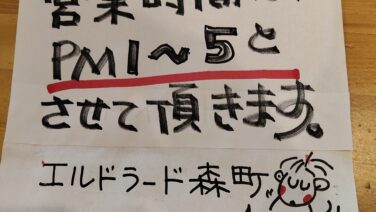 営業時間
PM1〜5と
させて頂きます。
エルドラード森町